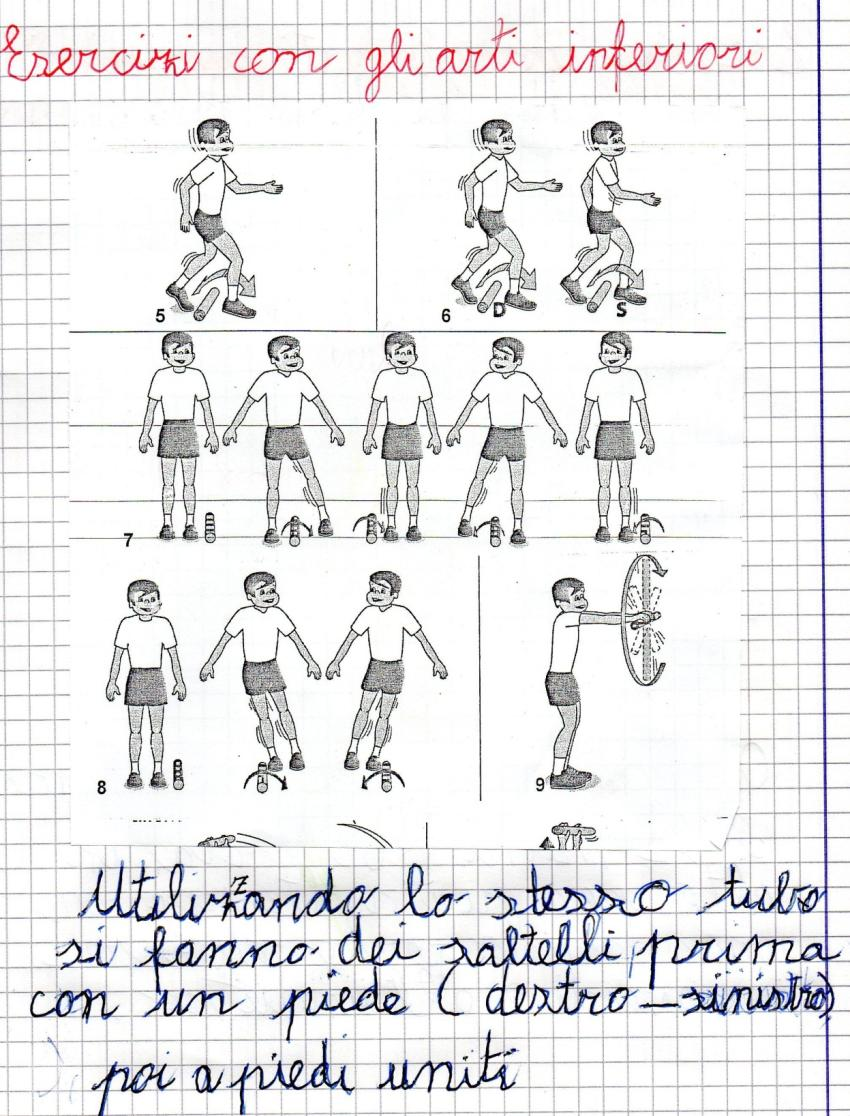 Esercizi con gli arti inferiori
5
6 D S
7
8
9
Utilizzando lo stesso tubo
si fanno dei saltelli, prima
con un piede (destro - sinistro)
poi a piedi uniti